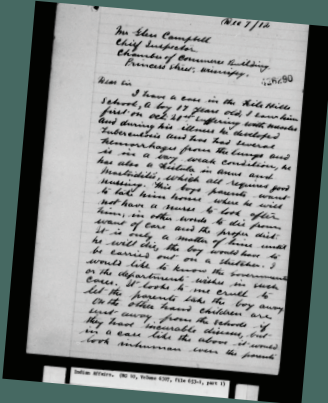 Nov 7/14
Mr Glen Campbell
Chief Inspector
Chamber of Commerce Building
Princess Street, Winnipeg.
Dear Sir
I have a case in the File Hills
School, a boy 17 years old, I saw him
first on Oct 28th suffering with measles
and during his illness he developed
Tuberculosis and has had several
hemorrhages from the lungs and
is in a very weak condition, he
has also a fistula in anus and
mastoiditis, which all requires good
nursing. This boys parents want
to take him home where he will
not have a nurse to look after
him, in other words to die from
want of care and the proper diet.
It is only a matter of time until
he will die, the boy would have to
be carried out on a stretcher. I
would like to know the Governments
or the departments wishes in such
cases. It looks to me cruel to
let the parents take the boy away
On the other hand children are
sent away from the schools if
they have incurable disease, but
in a case like the above it would
look inhuman even the parents
Indian Affairs. (RG 10, Volume 6307, file 653-1, part 1)